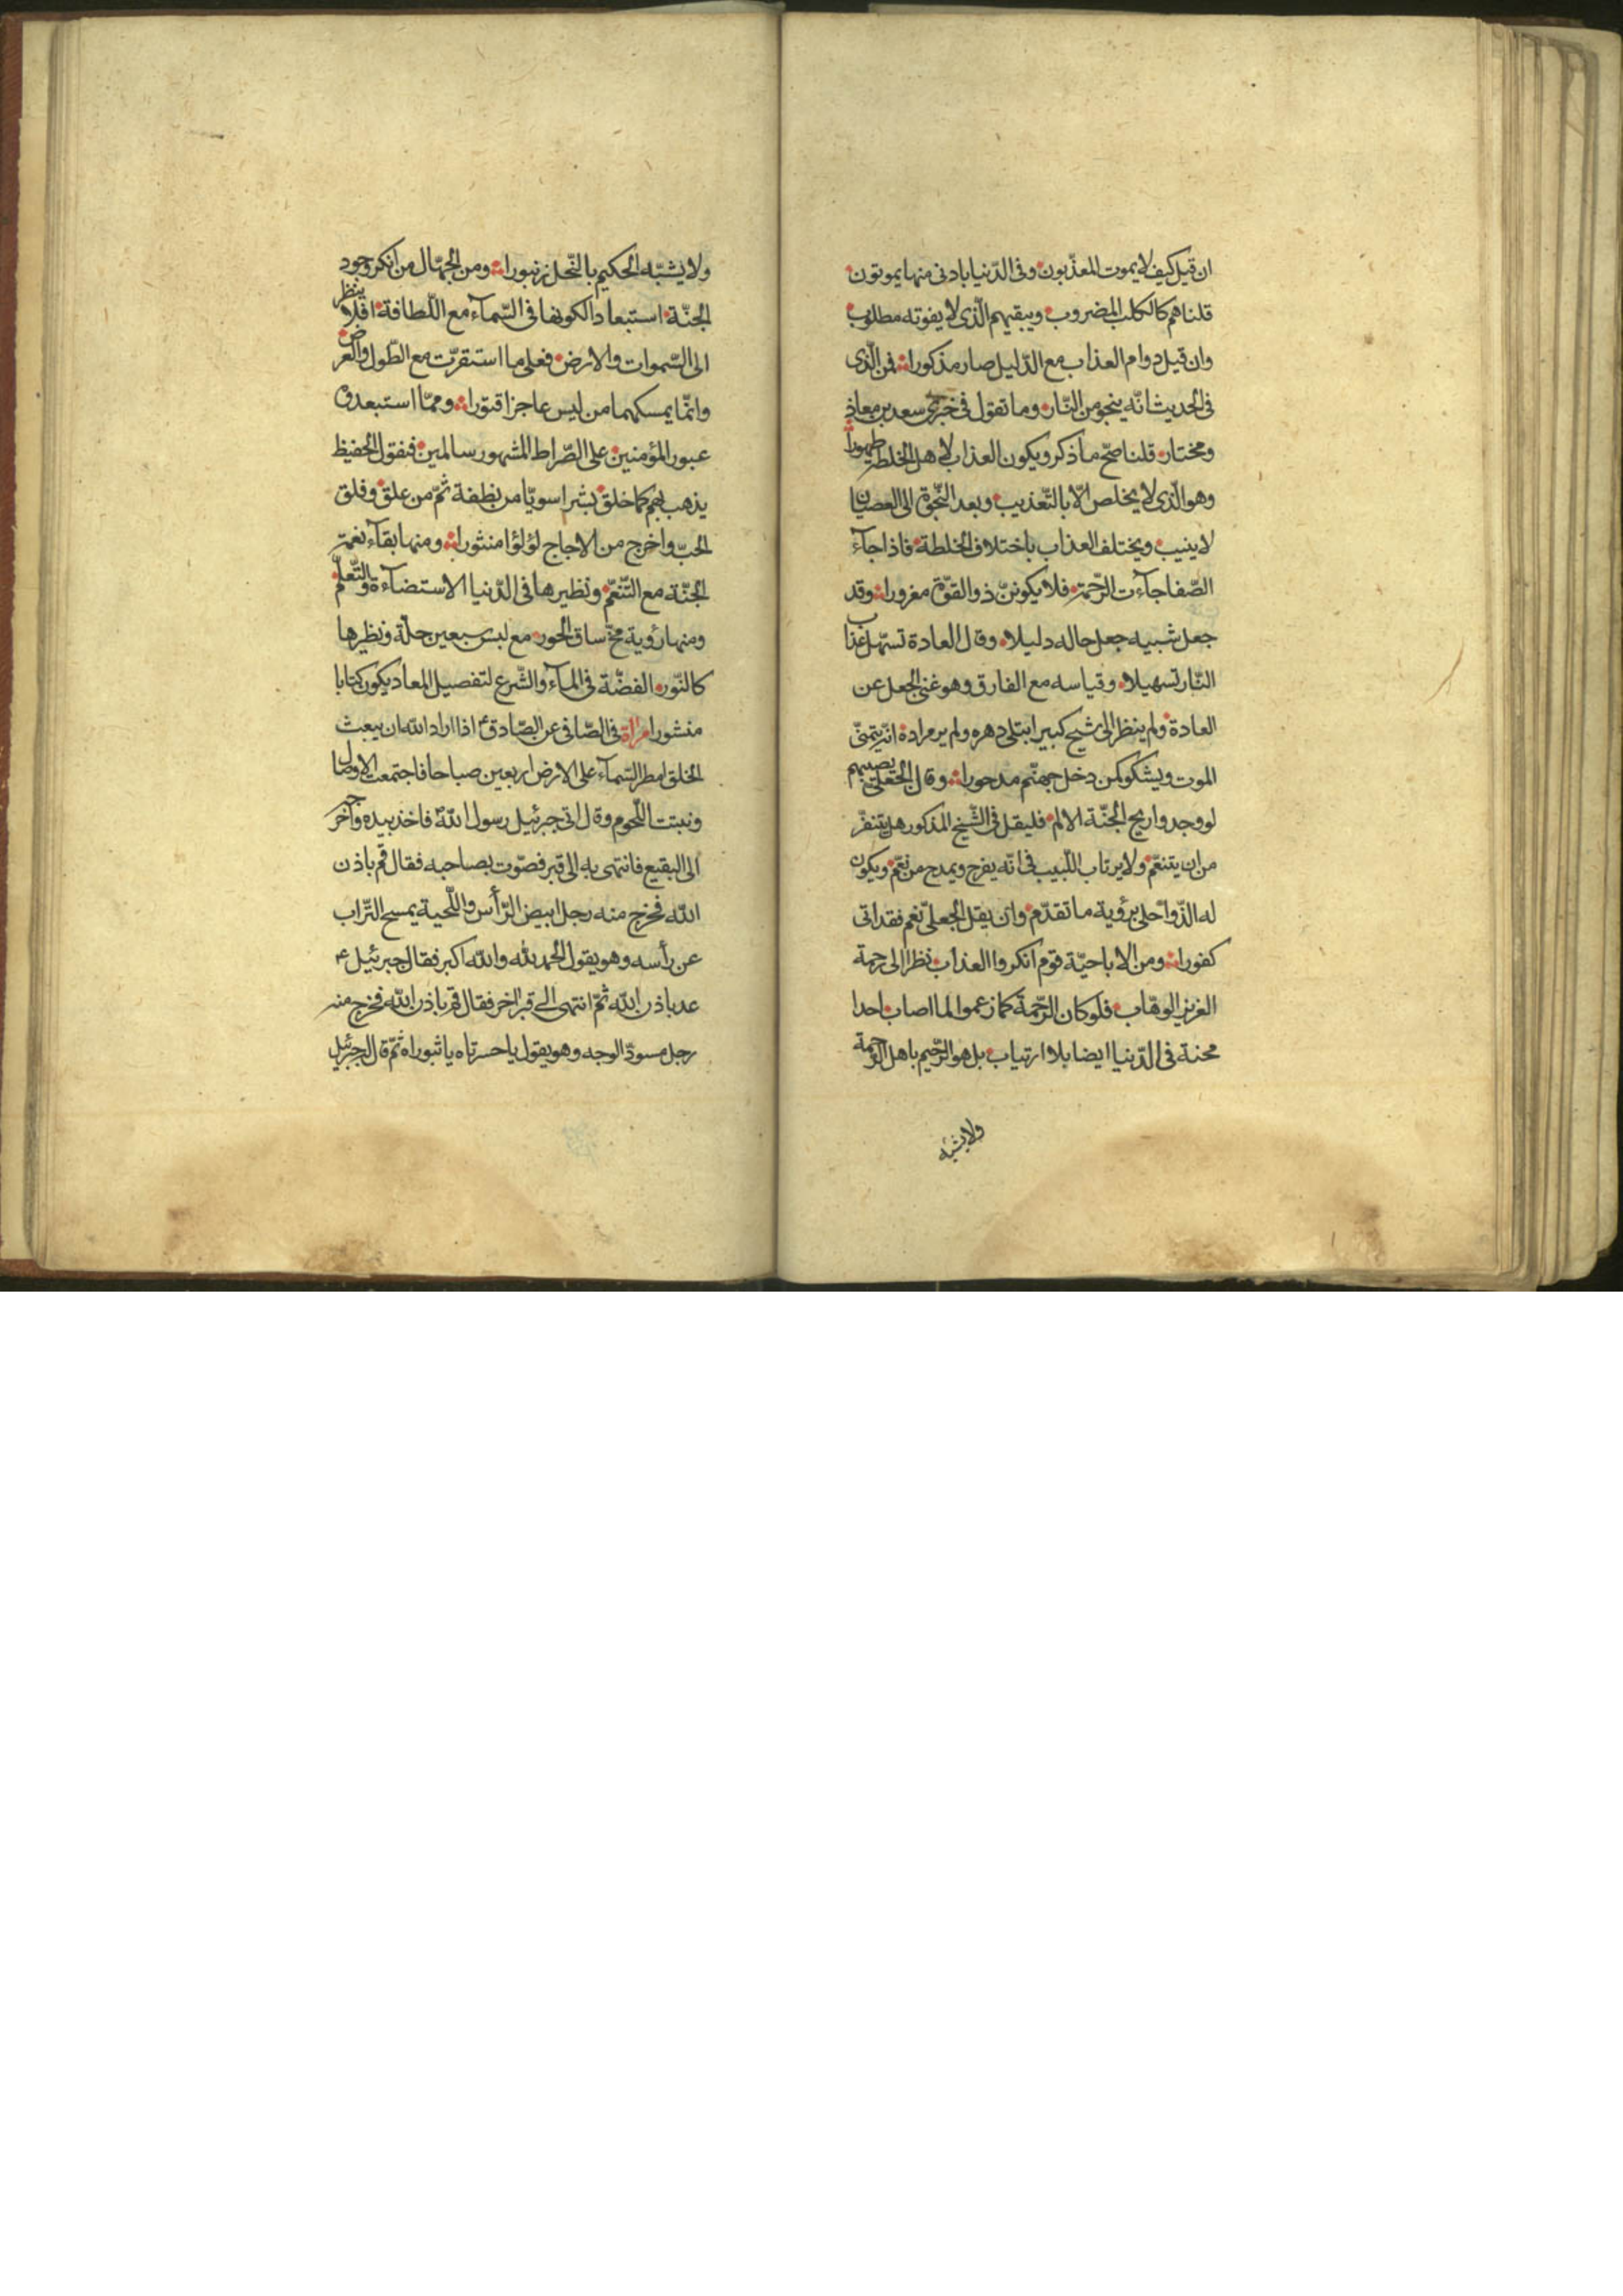 ان قيل كيف لا يموت المعذّبون وفى الدّنيا بادنى منها يموتون
قلنا هم كالكلب المضروب ويبقيهم الّذى لا يفوته مطلوب
وان قيل دوام العذاب مع الدّليل صار مذكورا فمن الّذى
فى الحديث انّه ينجو من النّار وما تقول فى خبرى سعد بن معاذ
ومختار قلنا صحّ ما ذكر ويكون العذاب لاهل الخلطة طهورا
وهو الّذى لا يخلص الّا بالتّعذيب وبعد النّجوة الى العصيان
لا ينيب ويختلف العذاب باختلاف الخلطة فاذا جآء
الصّفا جآءت الرّحمة فلا يكوننّ ذو القوّة مغرورا وقد
جعل شبيه جعل حاله دليلا وقال العادة تسهّل عذاب
النّار تسهيلا وقياسه مع الفارق وهو غنى الجعل عن
العادة ولم ينظر الى شيخ كبير ابتلى دهره ولم ير مراده انّه يتمنّى
الموت ويشكو كمن دخل جهنّم مدحورا وقال الجعلى يصيبهم
لو وجدوا ريح الجنّة الالم فليقل فى الشّيخ المذكور هل يتنفّر
من ان يتنعّم ولا يرتاب اللّبيب فى انّه يفرح ويمدح من نعّم ويكون
له الذّ واحلى برؤية ما تقدّم وان يقل الجعلىّ نعم فقد اتى
كفورا ومن الاباحيّة قوم انكروا العذاب نظرا الى رحمة
العزيز الوهّاب فلو كان الرّحمة كما زعموا لما اصاب احدا
محنة فى الدّنيا ايضا بلا ارتياب بل هو الرّحيم باهل الرّحمة
ولا يشبّه
ولا يشبّه الحكيم بالنّحل زنبورا ومن الجهّال من انكر وجود
الجنّة استبعادا لكونها فى السّمآء مع اللّطافة افلا ينظر
الى السّموات والارض فعلى ما استقرّت مع الطّول والعرض
وانّما يمسكهما من ليس عاجزا قتورا وممّا استبعدوه
عبور المؤمنين على الصّراط المشهور سالمين فنقول الحفيظ
يذهب بهم كما خلق بشرا سويّا من نطفة ثمّ من علق وفلق
الحبّ واخرج من الاجاج لؤلؤا منثورا ومنها بقآء نعمة
الجنّة مع التّنعّم ونظيرها فى الدّنيا الاستضآءة والتّعلّم
ومنها رؤية مخّ ساق الحور مع لبس سبعين حلّة ونظيرها
كالنّور الفضّة فى المآء والشّرع لتفصيل المعاد يكون كتابا
منشورا مرآة فى الصّافى عن الصّادق ع اذا اراد الله ان يبعث
الخلق امطر السّمآء على الارض اربعين صباحا فاجتمعت الاوصال
ونبتت اللّحوم وقال اتى جبرئيل رسول الله فاخذ بيده واخرجه
الى البقيع فانتهى به الى قبر فصوّت بصاحبه فقال قم باذن
الله فخرج منه رجل ابيض الرّأس واللّحية يمسح التّراب
عن رأسه وهو يقول الحمد لله والله اكبر فقال جبرئيل ع
عد باذن الله ثمّ انتهى الى قبر اخر فقال قم باذن الله فخرج منه
رجل مسودّ الوجه وهو يقول يا حسرتاه يا ثبوراه ثمّ قال جبرئيل